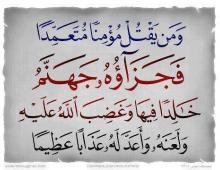 وَمَن يَقْتُلْ مُؤْمِنًا مُّتَعَمِّدًا
فَجَزَآؤُهُ جَهَنَّمُ
خَالِدًا فِيهَا وَغَضِبَ اللَّهُ عَلَيْهِ
وَلَعَنَهُ وَأَعَدَّ لَهُ عَذَابًا عَظِيمًا